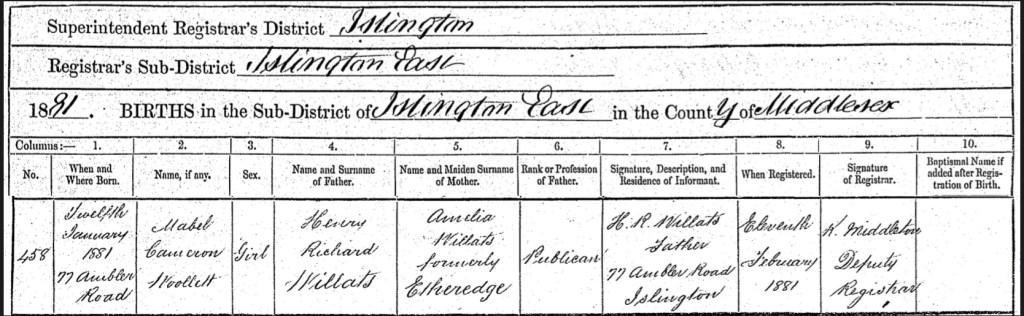 Superintendent Registrar's District Islington
Registrar's Sub-District Islington East
1881. BIRTHS in the Sub-District of Islington East in the County of Middlesex
Columns:— 1. 2. 3. 4. 5. 6. 7. 8. 9. 10.
No. When and Where Born. Name, if any. Sex. Name and Surname of Father. Name and Maiden Surname of Mother. Rank or Profession of Father. Signature, Description, and Residence of Informant. When Registered. Signature of Registrar. Baptismal Name if added after Registration of Birth.
458
Twelfth
January
1881
77 Ambler
Road
Mabel
Cameron
Woollett
Girl
Henry
Richard
Willats
Amelia
Willats
formerly
Etheredge
Publican
H. R. Willats
Father
77 Ambler Road
Islington
Eleventh
February
1881
K. Middleton
Deputy
Registrar